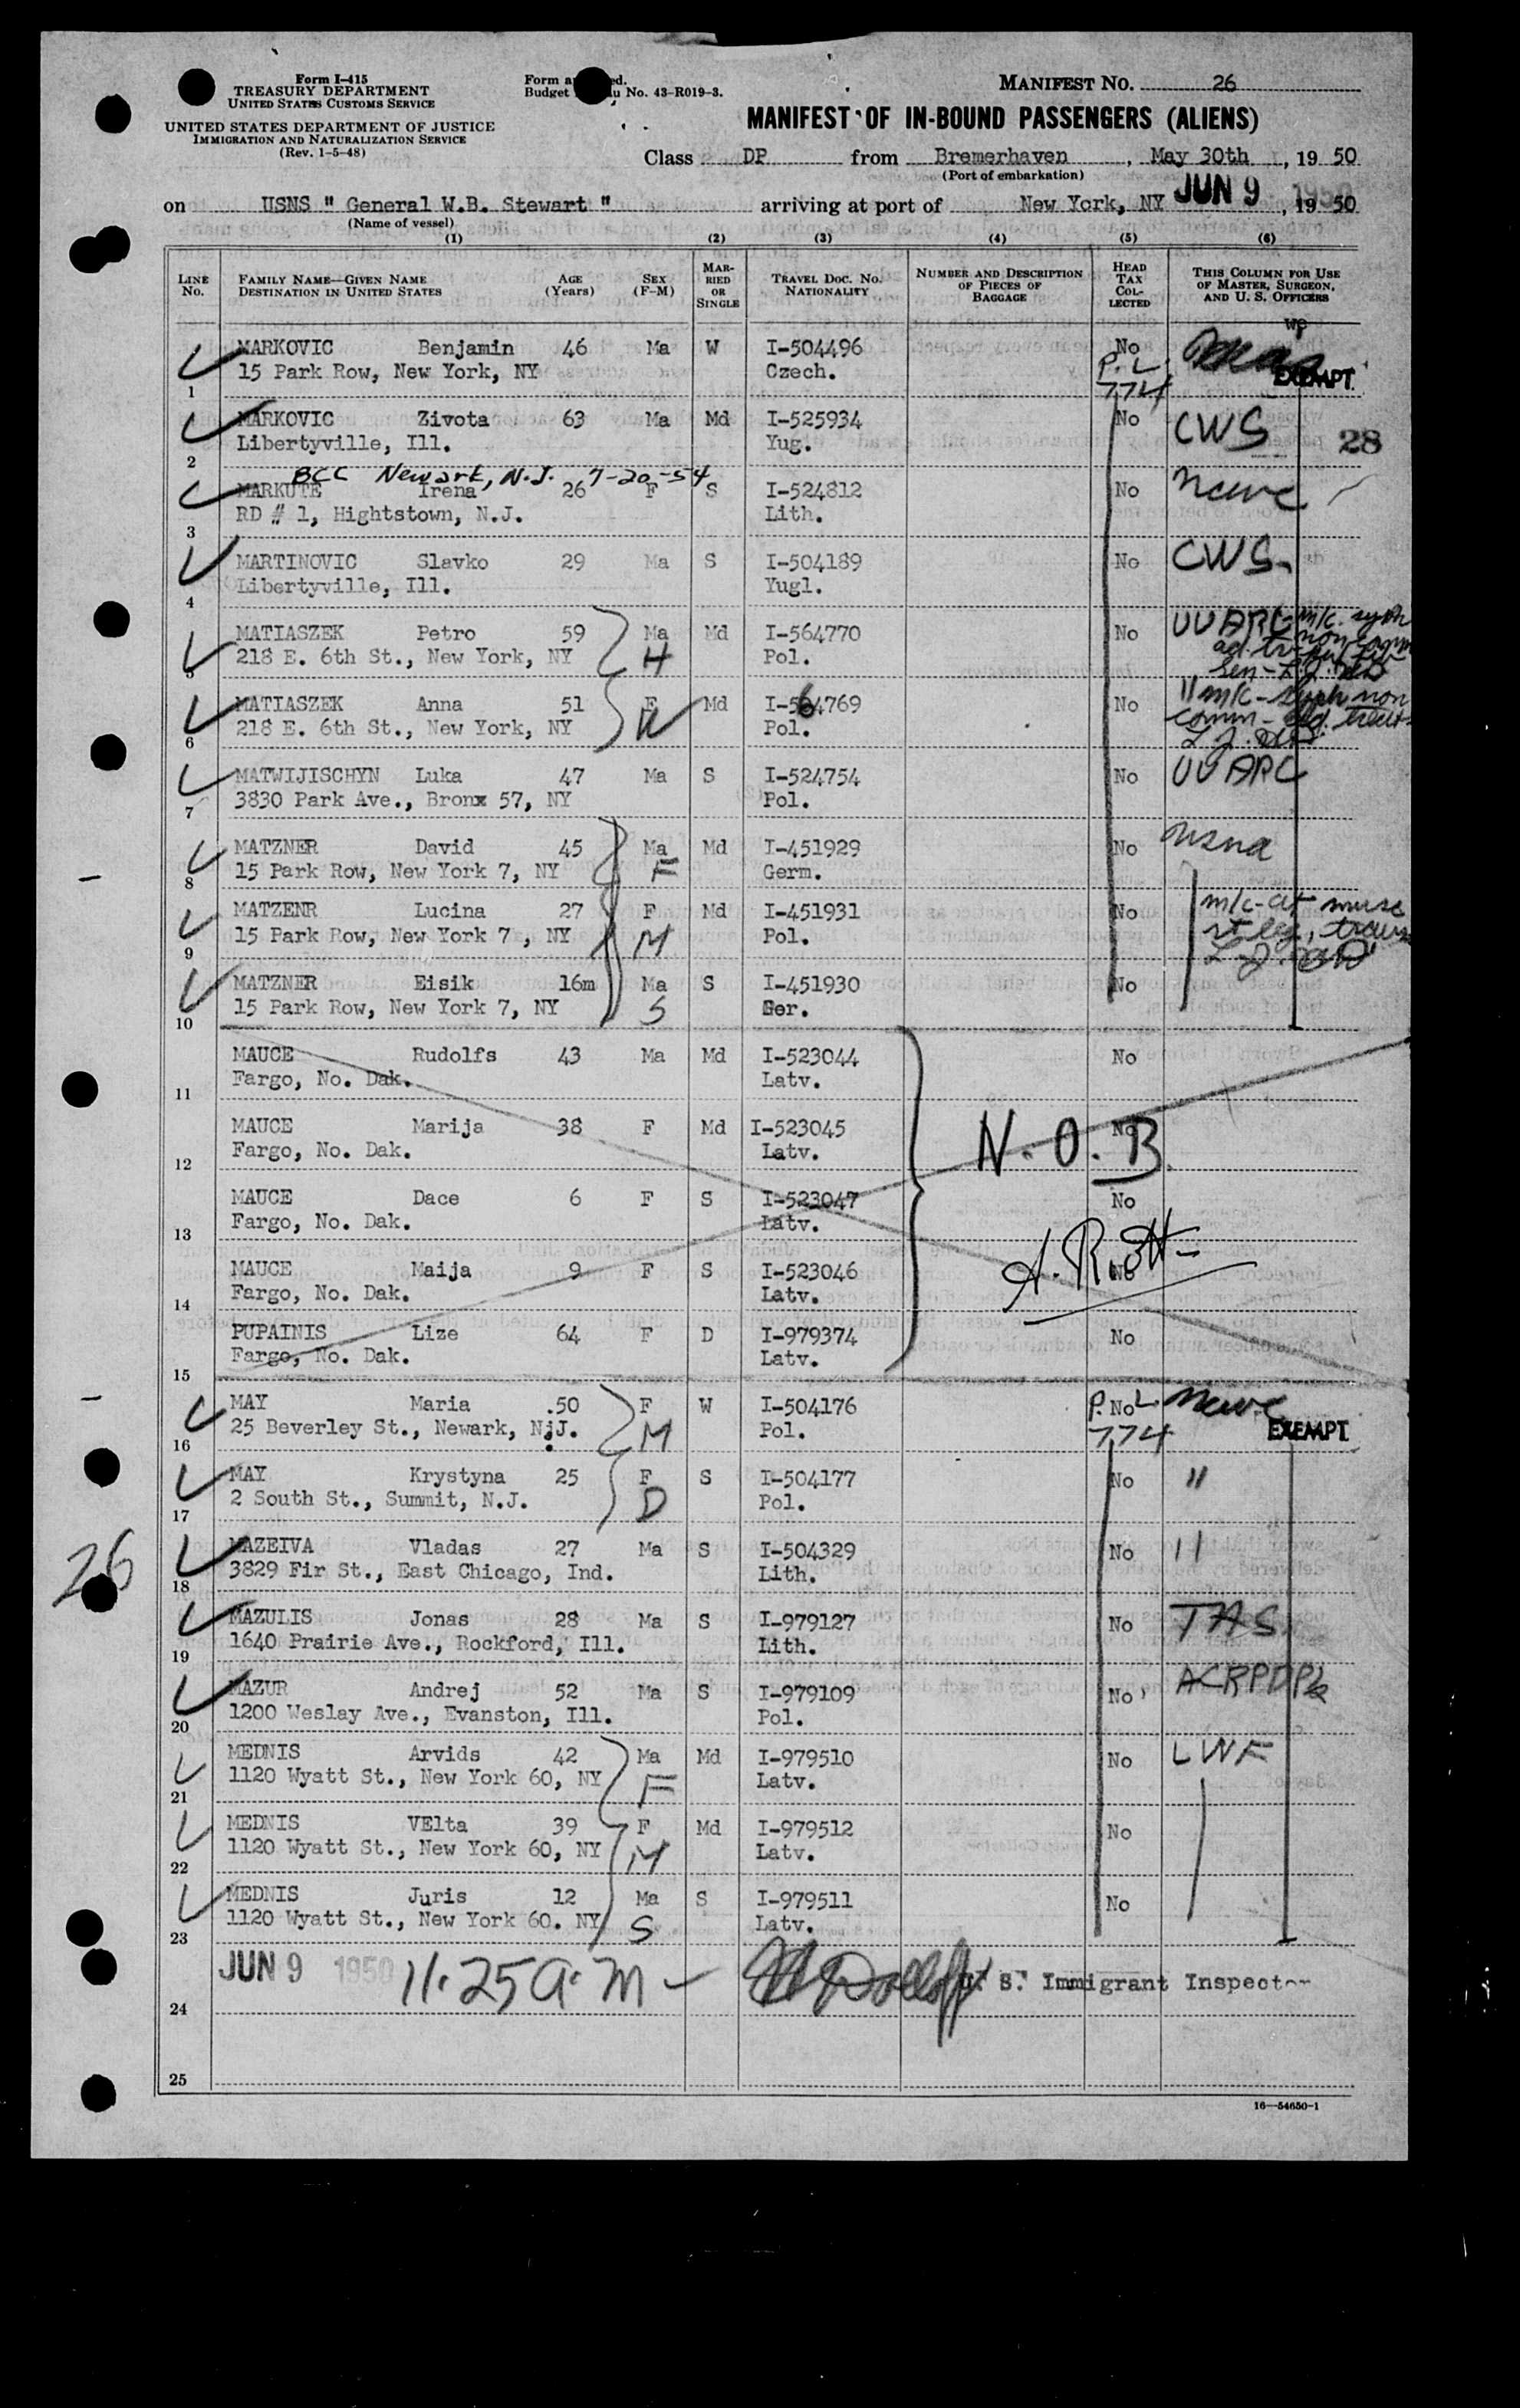 Form I-415
TREASURY DEPARTMENT
UNITED STATES CUSTOMS SERVICE
UNITED STATES DEPARTMENT OF JUSTICE
IMMIGRATION AND NATURALIZATION SERVICE
(Rev. 1-5-48)
Budget No. 43-R019-3.
MANIFEST NO. 26
MANIFEST OF IN-BOUND PASSENGERS (ALIENS)
Class DP from Bremerhaven, May 30th, 19 50
(Port of embarkation)
on USNS " General W.B. Stewart " arriving at port of New York, NY JUN 9 1950, 19 50
(Name of vessel)
(1) (2) (3) (4) (5) (6)
LINE No. FAMILY NAME—GIVEN NAME DESTINATION IN UNITED STATES AGE (Years) SEX (F-M) MARRIED OR SINGLE TRAVEL DOC. No. NATIONALITY NUMBER AND DESCRIPTION OF PIECES OF BAGGAGE HEAD TAX COLLECTED THIS COLUMN FOR USE OF MASTER, SURGEON, AND U. S. OFFICERS
MARKOVIC Benjamin 46 Ma W I-504496 No P.L. 774 EXEMPT
1 15 Park Row, New York, NY Czech.
MARKOVIC Zivota 63 Ma Md I-525934 No CWS 28
2 Libertyville, Ill. Yug.
BCC Newark, N.J. 7-20-54
MARKUTE Irena 26 F S I-524812 No
3 RD # 1, Hightstown, N.J. Lith.
MARTINOVIC Slavko 29 Ma S I-504189 No CWS
4 Libertyville, Ill. Yugl.
MATIASZEK Petro 59 Ma Md I-564770 No UUARC m/c
5 218 E. 6th St., New York, NY H Pol.
MATIASZEK Anna 51 F Md I-564769 No " m/c - syph non
6 218 E. 6th St., New York, NY W Pol. comm -
MATWIJISCHYN Luka 47 Ma S I-524754 No UUARC
7 3830 Park Ave., Bronx 57, NY Pol.
MATZNER David 45 Ma Md I-451929 No usna
8 15 Park Row, New York 7, NY F Germ.
MATZENR Lucina 27 F Md I-451931 No m/c-
9 15 Park Row, New York 7 , NY M Pol.
MATZNER Eisik 16m Ma S I-451930 No
10 15 Park Row, New York 7, NY S Ger.
MAUCE Rudolfs 43 Ma Md I-523044 No
11 Fargo, No. Dak. Latv.
MAUCE Marija 38 F Md I-523045 No N.O.B.
12 Fargo, No. Dak. Latv.
MAUCE Dace 6 F S I-523047 No
13 Fargo, No. Dak. Latv.
MAUCE Maija 9 F S I-523046 No
14 Fargo, No. Dak. Latv.
PUPAINIS Lize 64 F D I-979374 No
15 Fargo, No. Dak. Latv.
MAY Maria 50 F W I-504176 No P.L. 774 EXEMPT
16 25 Beverley St., Newark, N.J. M Pol.
MAY Krystyna 25 F S I-504177 No "
17 2 South St., Summit, N.J. D Pol.
MAZEIVA Vladas 27 Ma S I-504329 No "
18 3829 Fir St., East Chicago, Ind. Lith.
26
MAZULIS Jonas 28 Ma S I-979127 No TAS
19 1640 Prairie Ave., Rockford, Ill. Lith.
MAZUR Andrej 52 Ma S I-979109 No
20 1200 Weslay Ave., Evanston, Ill. Pol.
MEDNIS Arvids 42 Ma Md I-979510 No LWF
21 1120 Wyatt St., New York 60, NY F Latv.
MEDNIS VElta 39 F Md I-979512 No
22 1120 Wyatt St., New York 60, NY M Latv.
MEDNIS Juris 12 Ma S I-979511 No
23 1120 Wyatt St., New York 60. NY S Latv.
24 JUN 9 1950 11.25 a.m - U. S. Immigrant Inspector
25
16—54650-1